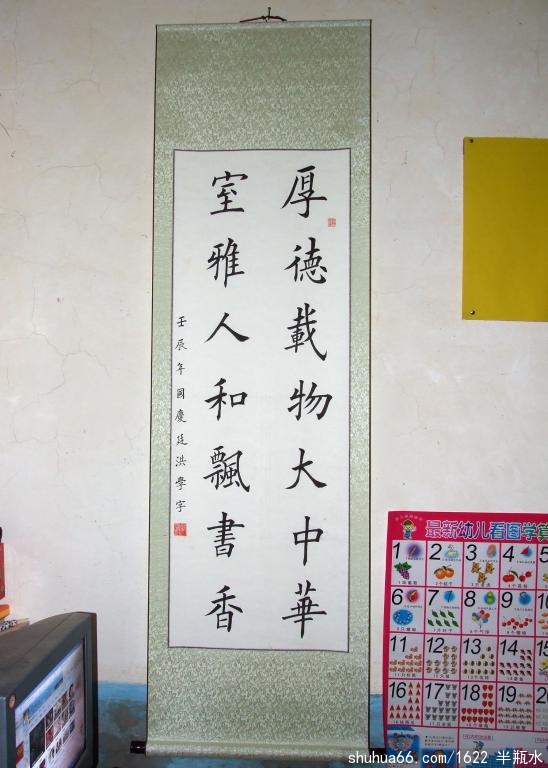 厚德載物大中華
室雅人和飄書香
壬辰年國慶廷洪學字
最新幼儿看图学算
1
2
3
4
5
6
7
8
9
10
11
12
13
14
15
16
17
18
19
20
shuhua66.com/1622 半瓶水